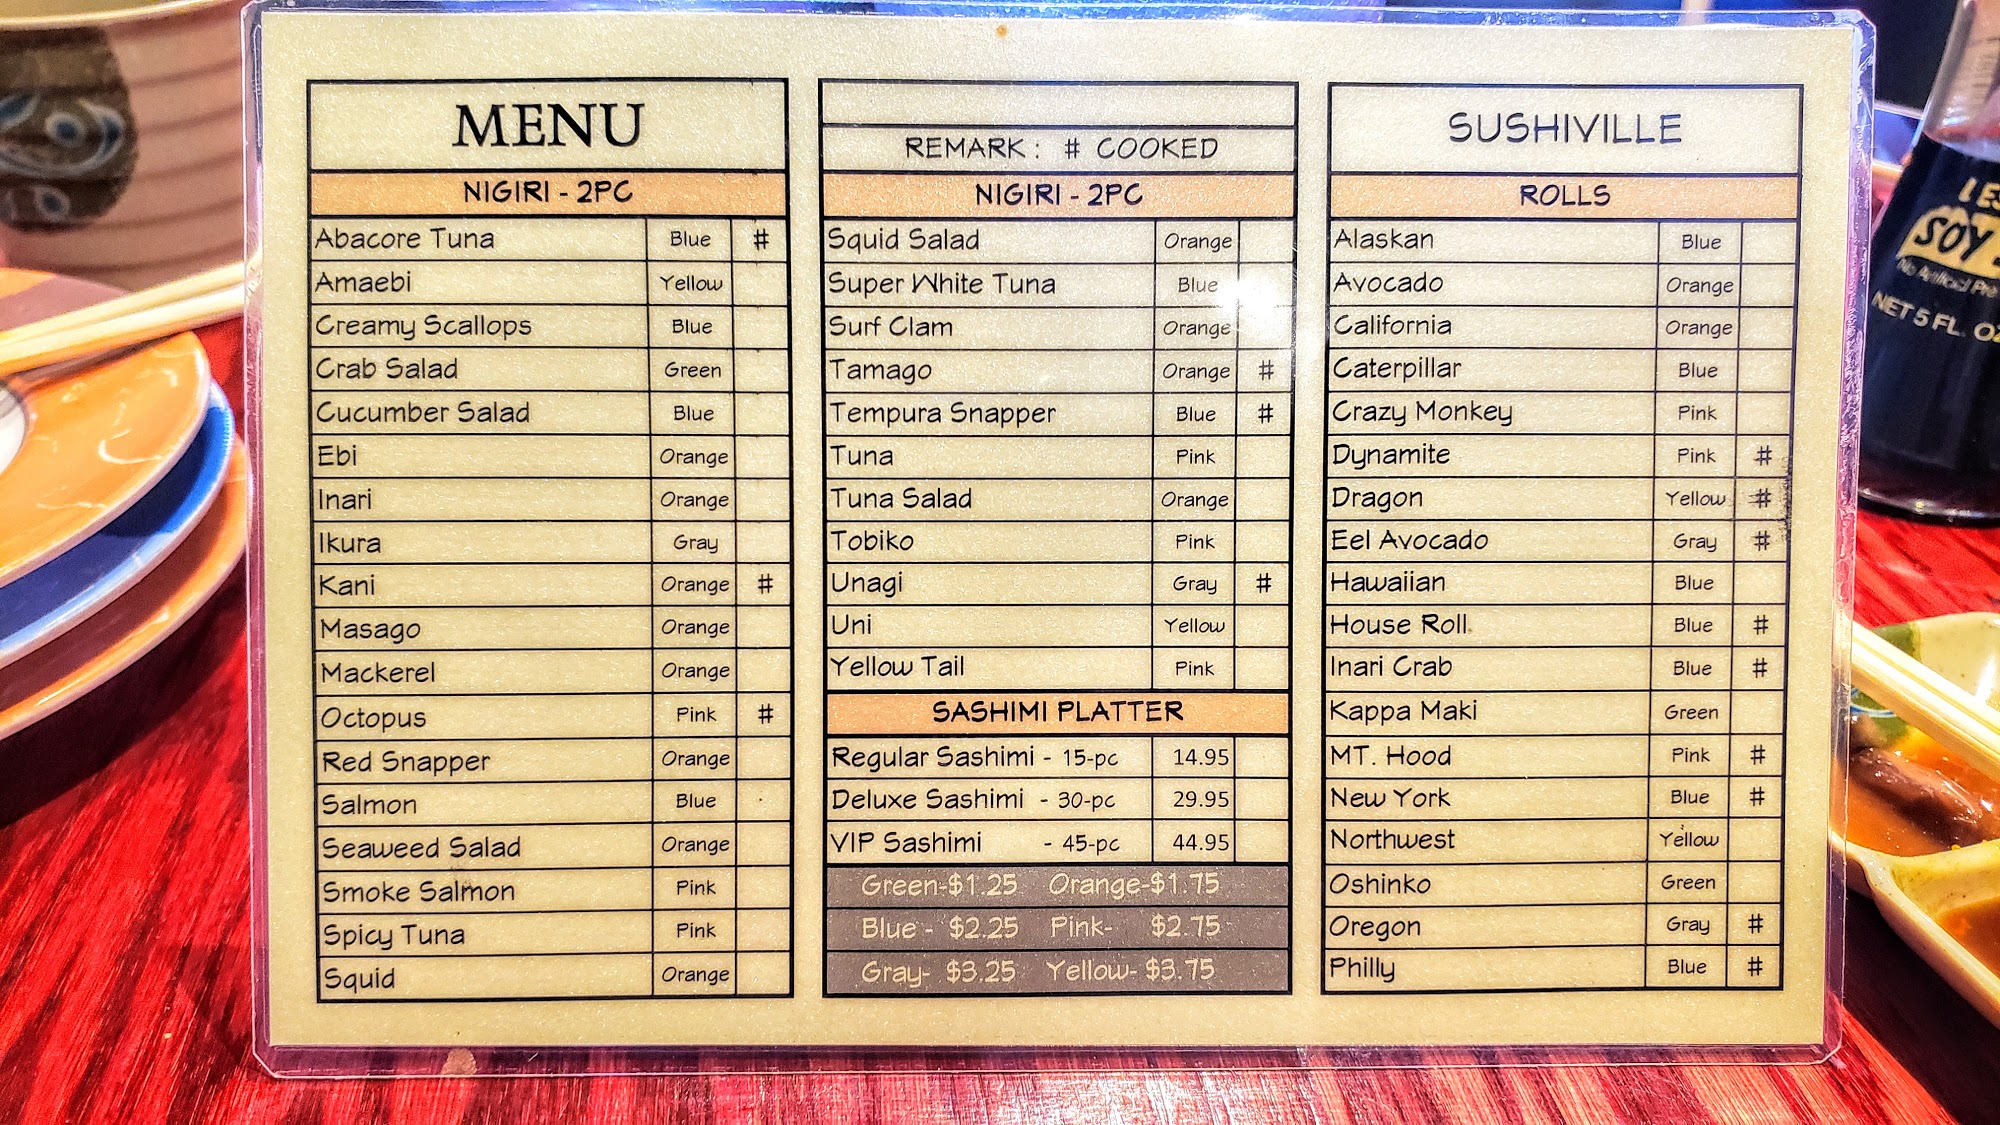 MENU
NIGIRI - 2PC
Abacore Tuna Blue #
Amaebi Yellow
Creamy Scallops Blue
Crab Salad Green
Cucumber Salad Blue
Ebi Orange
Inari Orange
Ikura Gray
Kani Orange #
Masago Orange
Mackerel Orange
Octopus Pink #
Red Snapper Orange
Salmon Blue
Seaweed Salad Orange
Smoke Salmon Pink
Spicy Tuna Pink
Squid Orange
REMARK: # COOKED
NIGIRI - 2PC
Squid Salad Orange
Super White Tuna Blue
Surf Clam Orange
Tamago Orange #
Tempura Snapper Blue #
Tuna Pink
Tuna Salad Orange
Tobiko Pink
Unagi Gray #
Uni Yellow
Yellow Tail Pink
SASHIMI PLATTER
Regular Sashimi - 15-pc 14.95
Deluxe Sashimi - 30-pc 29.95
VIP Sashimi - 45-pc 44.95
Green-$1.25 Orange-$1.75
Blue - $2.25 Pink- $2.75
Gray- $3.25 Yellow- $3.75
SUSHIVILLE
ROLLS
Alaskan Blue
Avocado Orange
California Orange
Caterpillar Blue
Crazy Monkey Pink
Dynamite Pink #
Dragon Yellow #
Eel Avocado Gray #
Hawaiian Blue
House Roll Blue #
Inari Crab Blue #
Kappa Maki Green
MT. Hood Pink #
New York Blue #
Northwest Yellow
Oshinko Green
Oregon Gray #
Philly Blue #
SOY
NET 5 FL. OZ